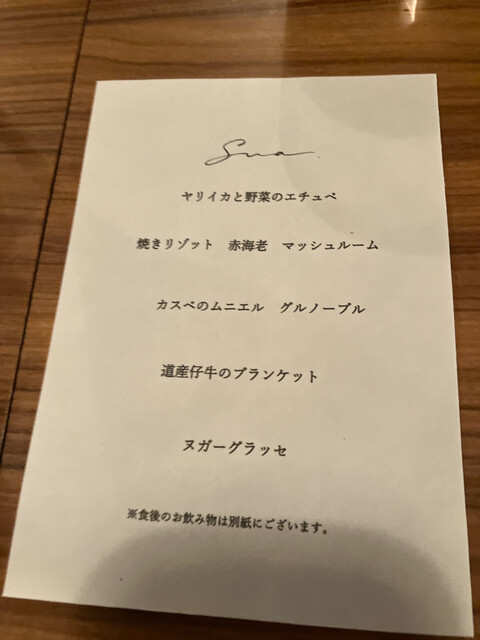 Sua.
ヤリイカと野菜のエチュベ
焼きリゾット　赤海老　マッシュルーム
カスベのムニエル　グルノーブル
道産仔牛のブランケット
ヌガーグラッセ
※食後のお飲み物は別紙にございます。